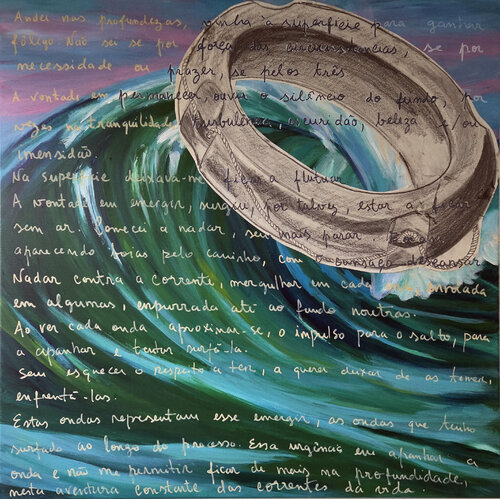 Andei nas profundezas, vinha à superfície para ganhar
fôlego. Não sei se por força das circunstâncias, se por
necessidade ou prazer, se pelos três.
A vontade em permanecer, ouvir o silêncio do fundo, por
vezes na tranquilidade, turbulência, escuridão, beleza e/ou
imensidão.
Na superfície deixava-me ficar a flutuar.
A vontade em emergir, surgiu, por talvez, estar a ficar
sem ar. Comecei a nadar, sem mais parar.
aparecendo boias pelo caminho, com o cansaço descansar
Nadar contra corrente, mergulhar em cada onda, enrolada
em algumas, empurrada até ao fundo noutras.
Ao ver cada onda aproximar-se, o impulso para o salto, para
a apanhar e tentar surfá-la.
Sem esquecer o respeito a ter, a querer deixar de as temer,
enfrentá-las.
Estas ondas representam esse emergir, as ondas que tenho
surfado ao longo do processo. Essa urgência em apanhar a
onda e não me permitir ficar de mais na profundidade,
nesta aventura constante das correntes da vida.